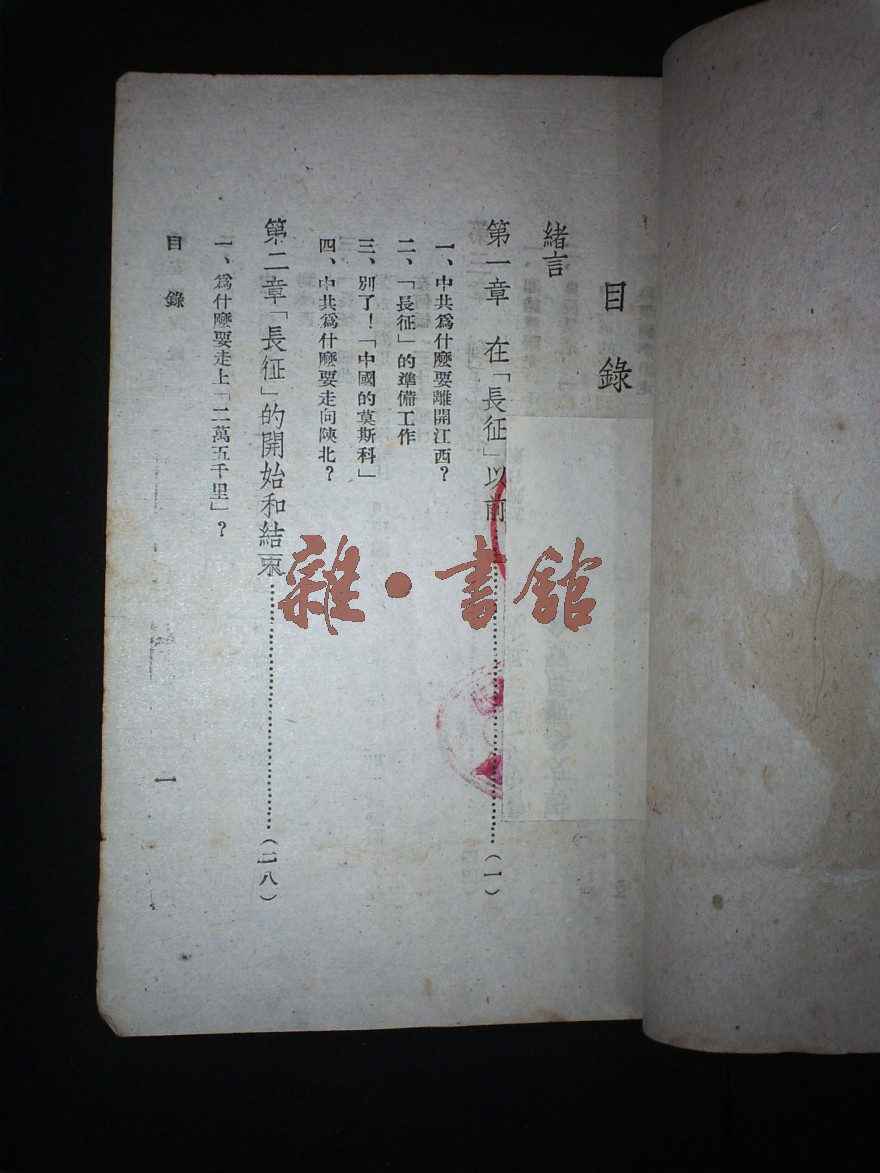 目錄
緒言
第一章 在「長征」以前………(一)
一、中共爲什麼要離開江西？
二、「長征」的準備工作
三、別了！「中國的莫斯科」
四、中共爲什麼要走向陝北？
第二章「長征」的開始和結束………(二八)
一、爲什麼要走上「二萬五千里」？
目錄
一
雜·書館